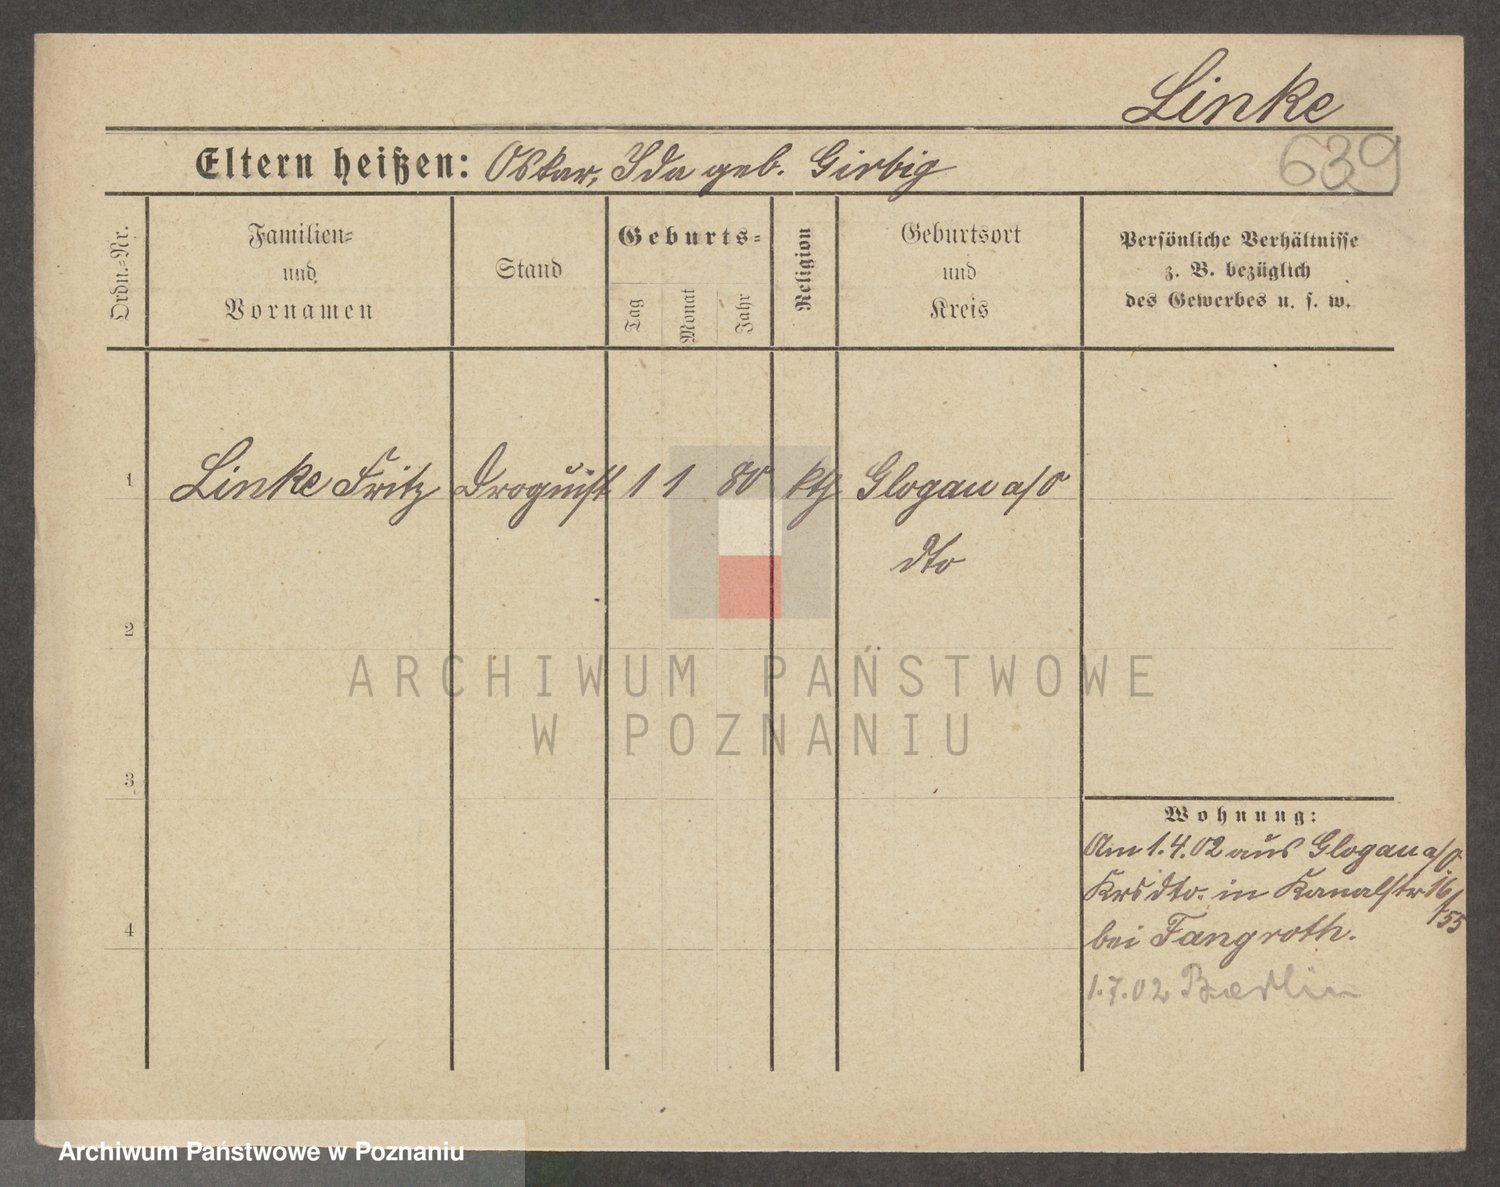 Linke
639
Eltern heißen: Oskar, Ida geb. Girbig
Ordn.=Nr.
Familien=
und
Vornamen
Stand
Geburts=
Tag
Monat
Jahr
Religion
Geburtsort
und
Kreis
Persönliche Verhältnisse
z. B. bezüglich
des Gewerbes u. s. w.
1 Linke Fritz Droguist 1 1 80 kth Glogau a/O
dto
2
3
4
Wohnung:
Am 1.4.02 aus Glogau a/O
Krs dto. in Kanalstr 16
/55
bei Fangroth.
1.7.02 Berlin
ARCHIWUM PAŃSTWOWE
W POZNANIU
Archiwum Państwowe w Poznaniu